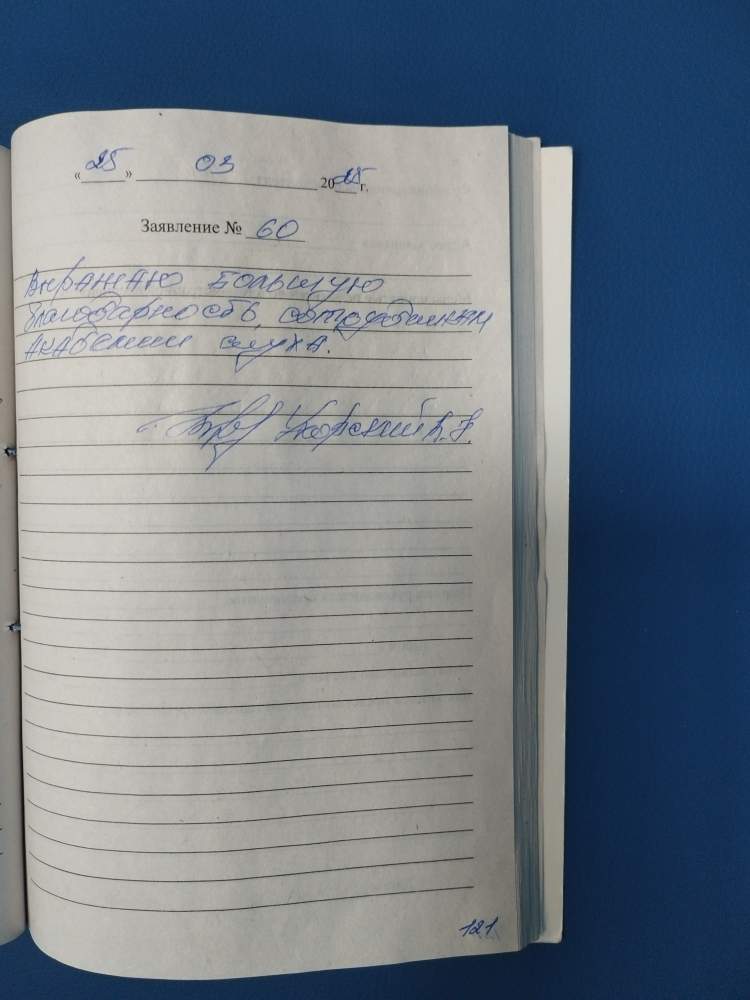 «25» 03 2025г.
Заявление № 60
Выражаю большую
благодарность сотрудникам
Академии слуха.
121